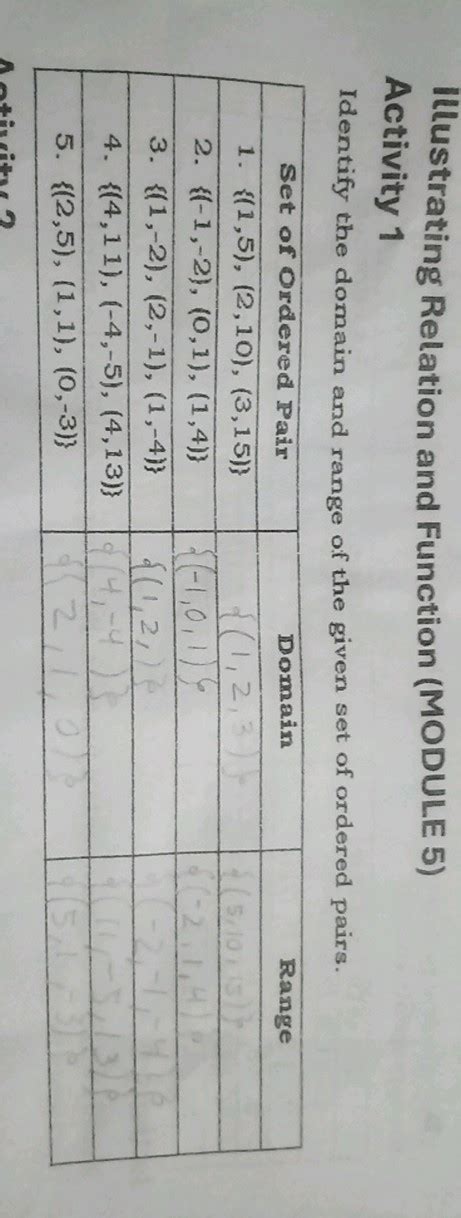 Illustrating Relation and Function (MODULE 5)
Activity 1
Identify the domain and range of the given set of ordered pairs.
Set of Ordered Pair Domain Range
1. {(1,5), (2,10), (3,15)} {(1,2,3)} {(5,10,15)}
2. {(-1,-2), (0,1), (1,4)} {(-1,0,1)} {(-2,1,4)}
3. {(1,-2), (2,-1), (1,-4)} {(1,2,)} {(-2,-1,-4)}
4. {(4,11), (-4,-5), (4,13)} {(4,-4)} {(11,-5,13)}
5. {(2,5), (1,1), (0,-3)} {(2,1,0)} {(5,1,-3)}
Activity 2